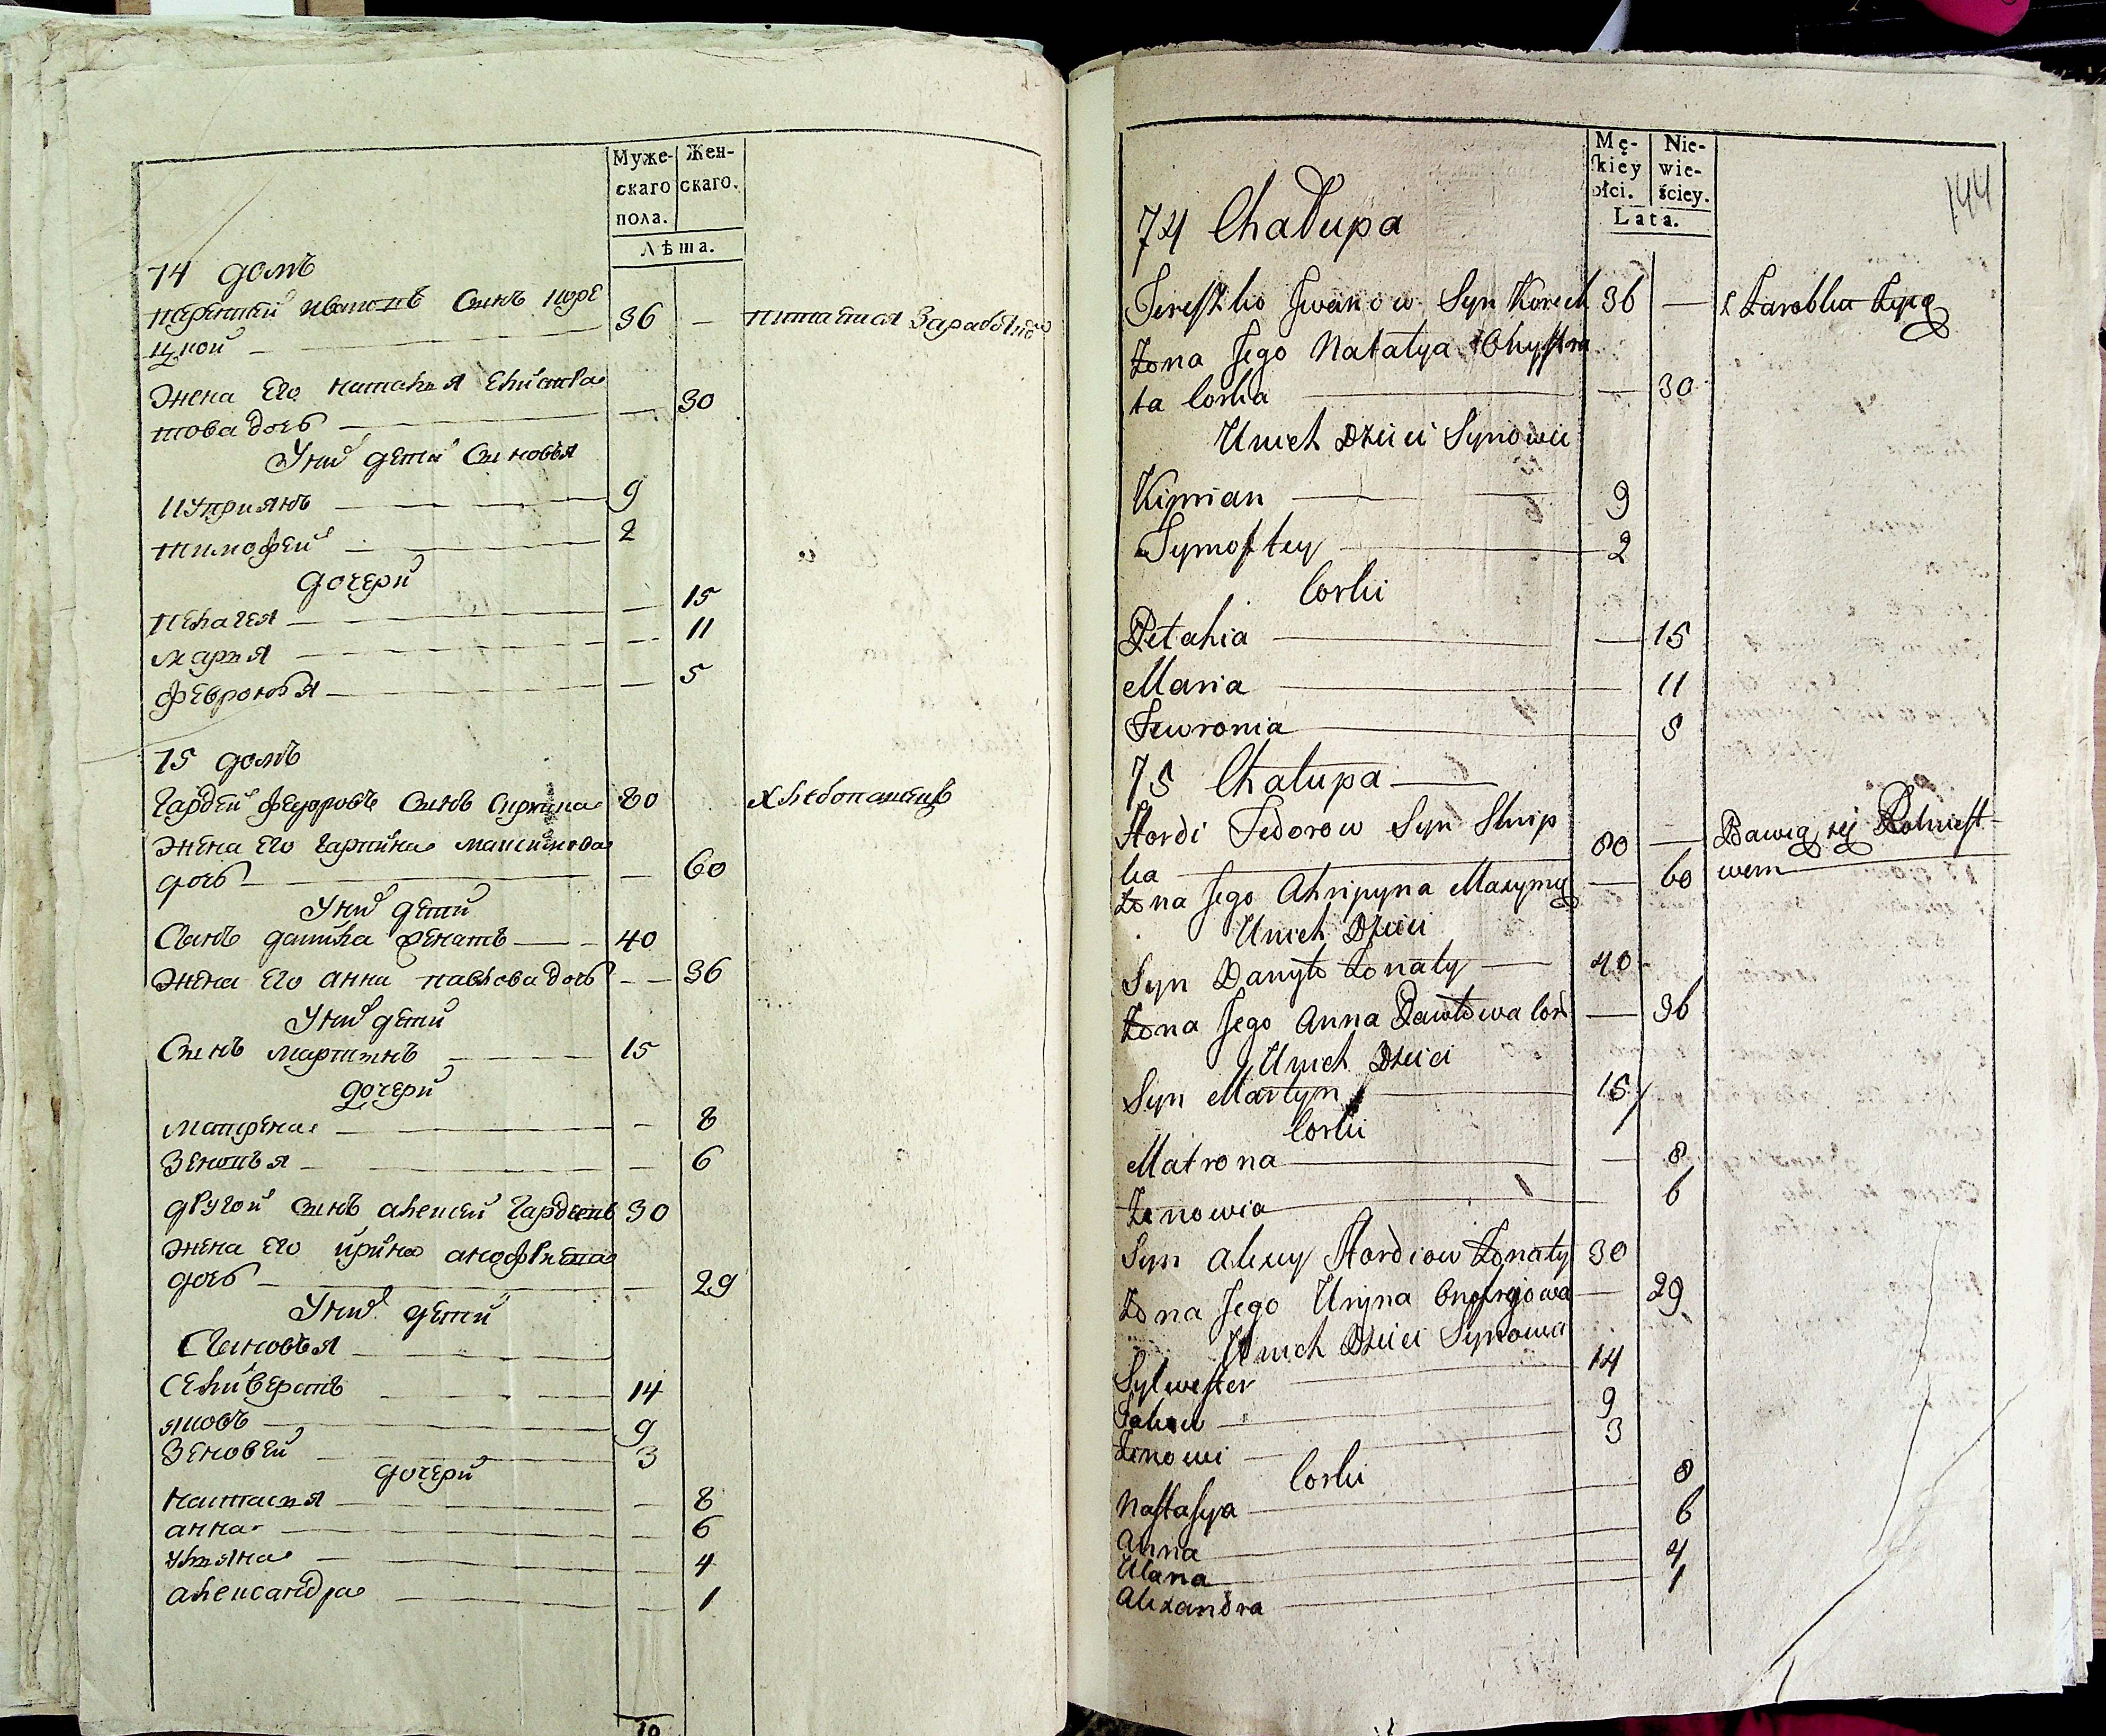 Муже-
скаго
пола.
Жен-
скаго.
Лѣта.
74 домъ
Ивановъ Сынъ Коре
цкой 36 — питается Заработко
Жена Его наталья
това дочь — 30
Униӥ дети Сыновья
Куприянъ 9
тимофей 2
дочери
пелагея — 15
марья — 11
февронья — 5
75 домъ
Гардей федоровъ Сынъ 80 хлебопашецъ
Жена Его Гарпина максимова
дочь — 60
Униӥ дети
Сынъ данила Женатъ 40
Жена Его анна павлова дочь — 36
Униӥ дети
Сынъ мартынъ 15
дочери
матрена — 8
Зеновья — 6
другой сынъ алексей Гардеевъ 30
Жена Его ирина
дочь — 29
Униӥ дети
Сыновья
Селиверстъ 14
яковъ 9
Зеновей 3
дочери
настасия — 8
анна — 6
ульяна — 4
александра — 1
10
Mę-
kiey
płci.
Nie-
wie-
ściey.
Lata.
144
74 Chałupa
Tereszko Iwanow Syn Koreck 36 — z Zarobku Żyią
Żona Jego Natalya Chystra
ta Corka — 30
Unich Dzieci Synowie
Kiprian 9
Tymoftey 2
Corki
Pelahia — 15
Maria — 11
Fewronia 5
75 Chałupa
Hordi Fedorow Syn Skrip
ka 80 — Bawią się Rolnict
wem
Żona Jego Ahripyna Maxymą — 60
Unich Dzieci
Syn Danyło Żonaty 40
Żona Jego Anna Pawłowa Cor — 36
Unich Dzieci
Syn Martyn 15
Corki
Matrona — 8
Zenowia 6
Syn Alexy Hordiow Żonaty 30
Żona Jego Uryna Onofryiowa — 29
Unich Dzieci Synowie
Sylwester 14
Jakow 9
Zenowi 3
Corki
Nastasya 8
Anna 6
Ulana 4
Alexandra 1